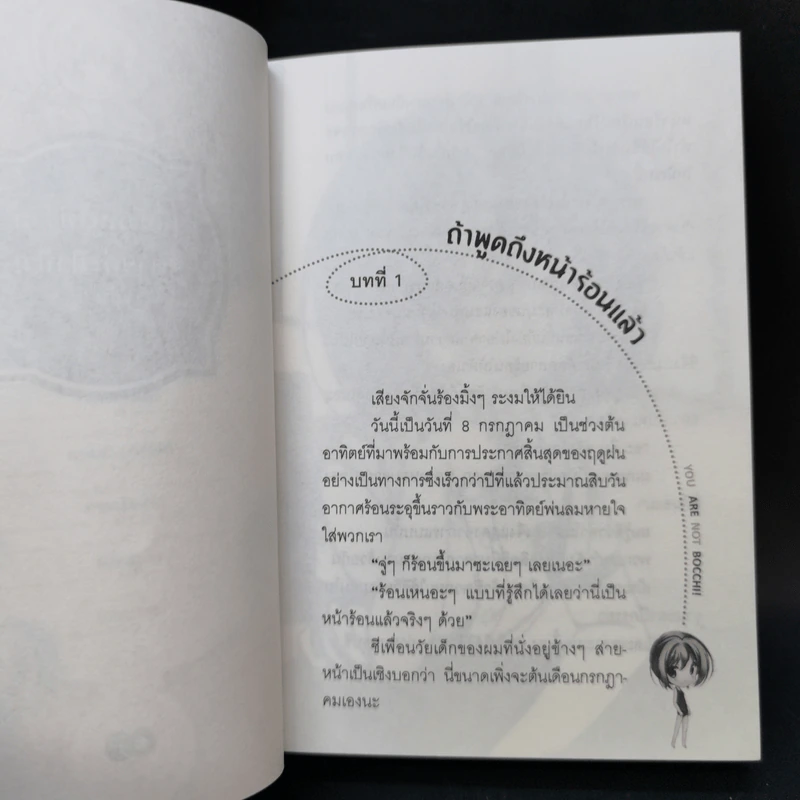 ถ้าพูดถึงหน้าร้อนแล้ว
บทที่ 1
เสียงจักจั่นร้องมิ้งๆ ระงมให้ได้ยิน
วันนี้เป็นวันที่ 8 กรกฎาคม เป็นช่วงต้น
อาทิตย์ที่มาพร้อมกับการประกาศสิ้นสุดของฤดูฝน
อย่างเป็นทางการซึ่งเร็วกว่าปีที่แล้วประมาณสิบวัน
อากาศร้อนระอุขึ้นราวกับพระอาทิตย์พ่นลมหายใจ
ใส่พวกเรา
“จู่ๆ ก็ร้อนขึ้นมาซะเฉยๆ เลยเนอะ”
“ร้อนเหนอะๆ แบบที่รู้สึกได้เลยว่านี่เป็น
หน้าร้อนแล้วจริงๆ ด้วย”
ชีเพื่อนวัยเด็กของผมที่นั่งอยู่ข้างๆ ส่าย-
หน้าเป็นเชิงบอกว่า นี่ขนาดเพิ่งจะต้นเดือนกรกฎา-
คมเองนะ
YOU ARE NOT BOCCHI!